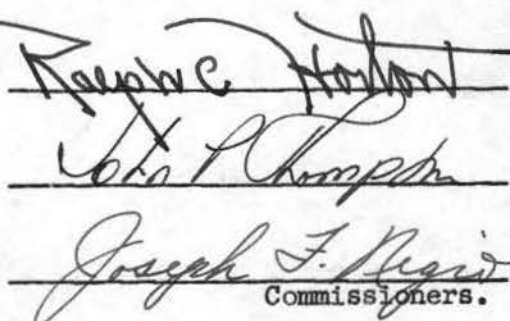 Ralph C Horton
John P Thompson
Joseph F. Negio
Commissioners.